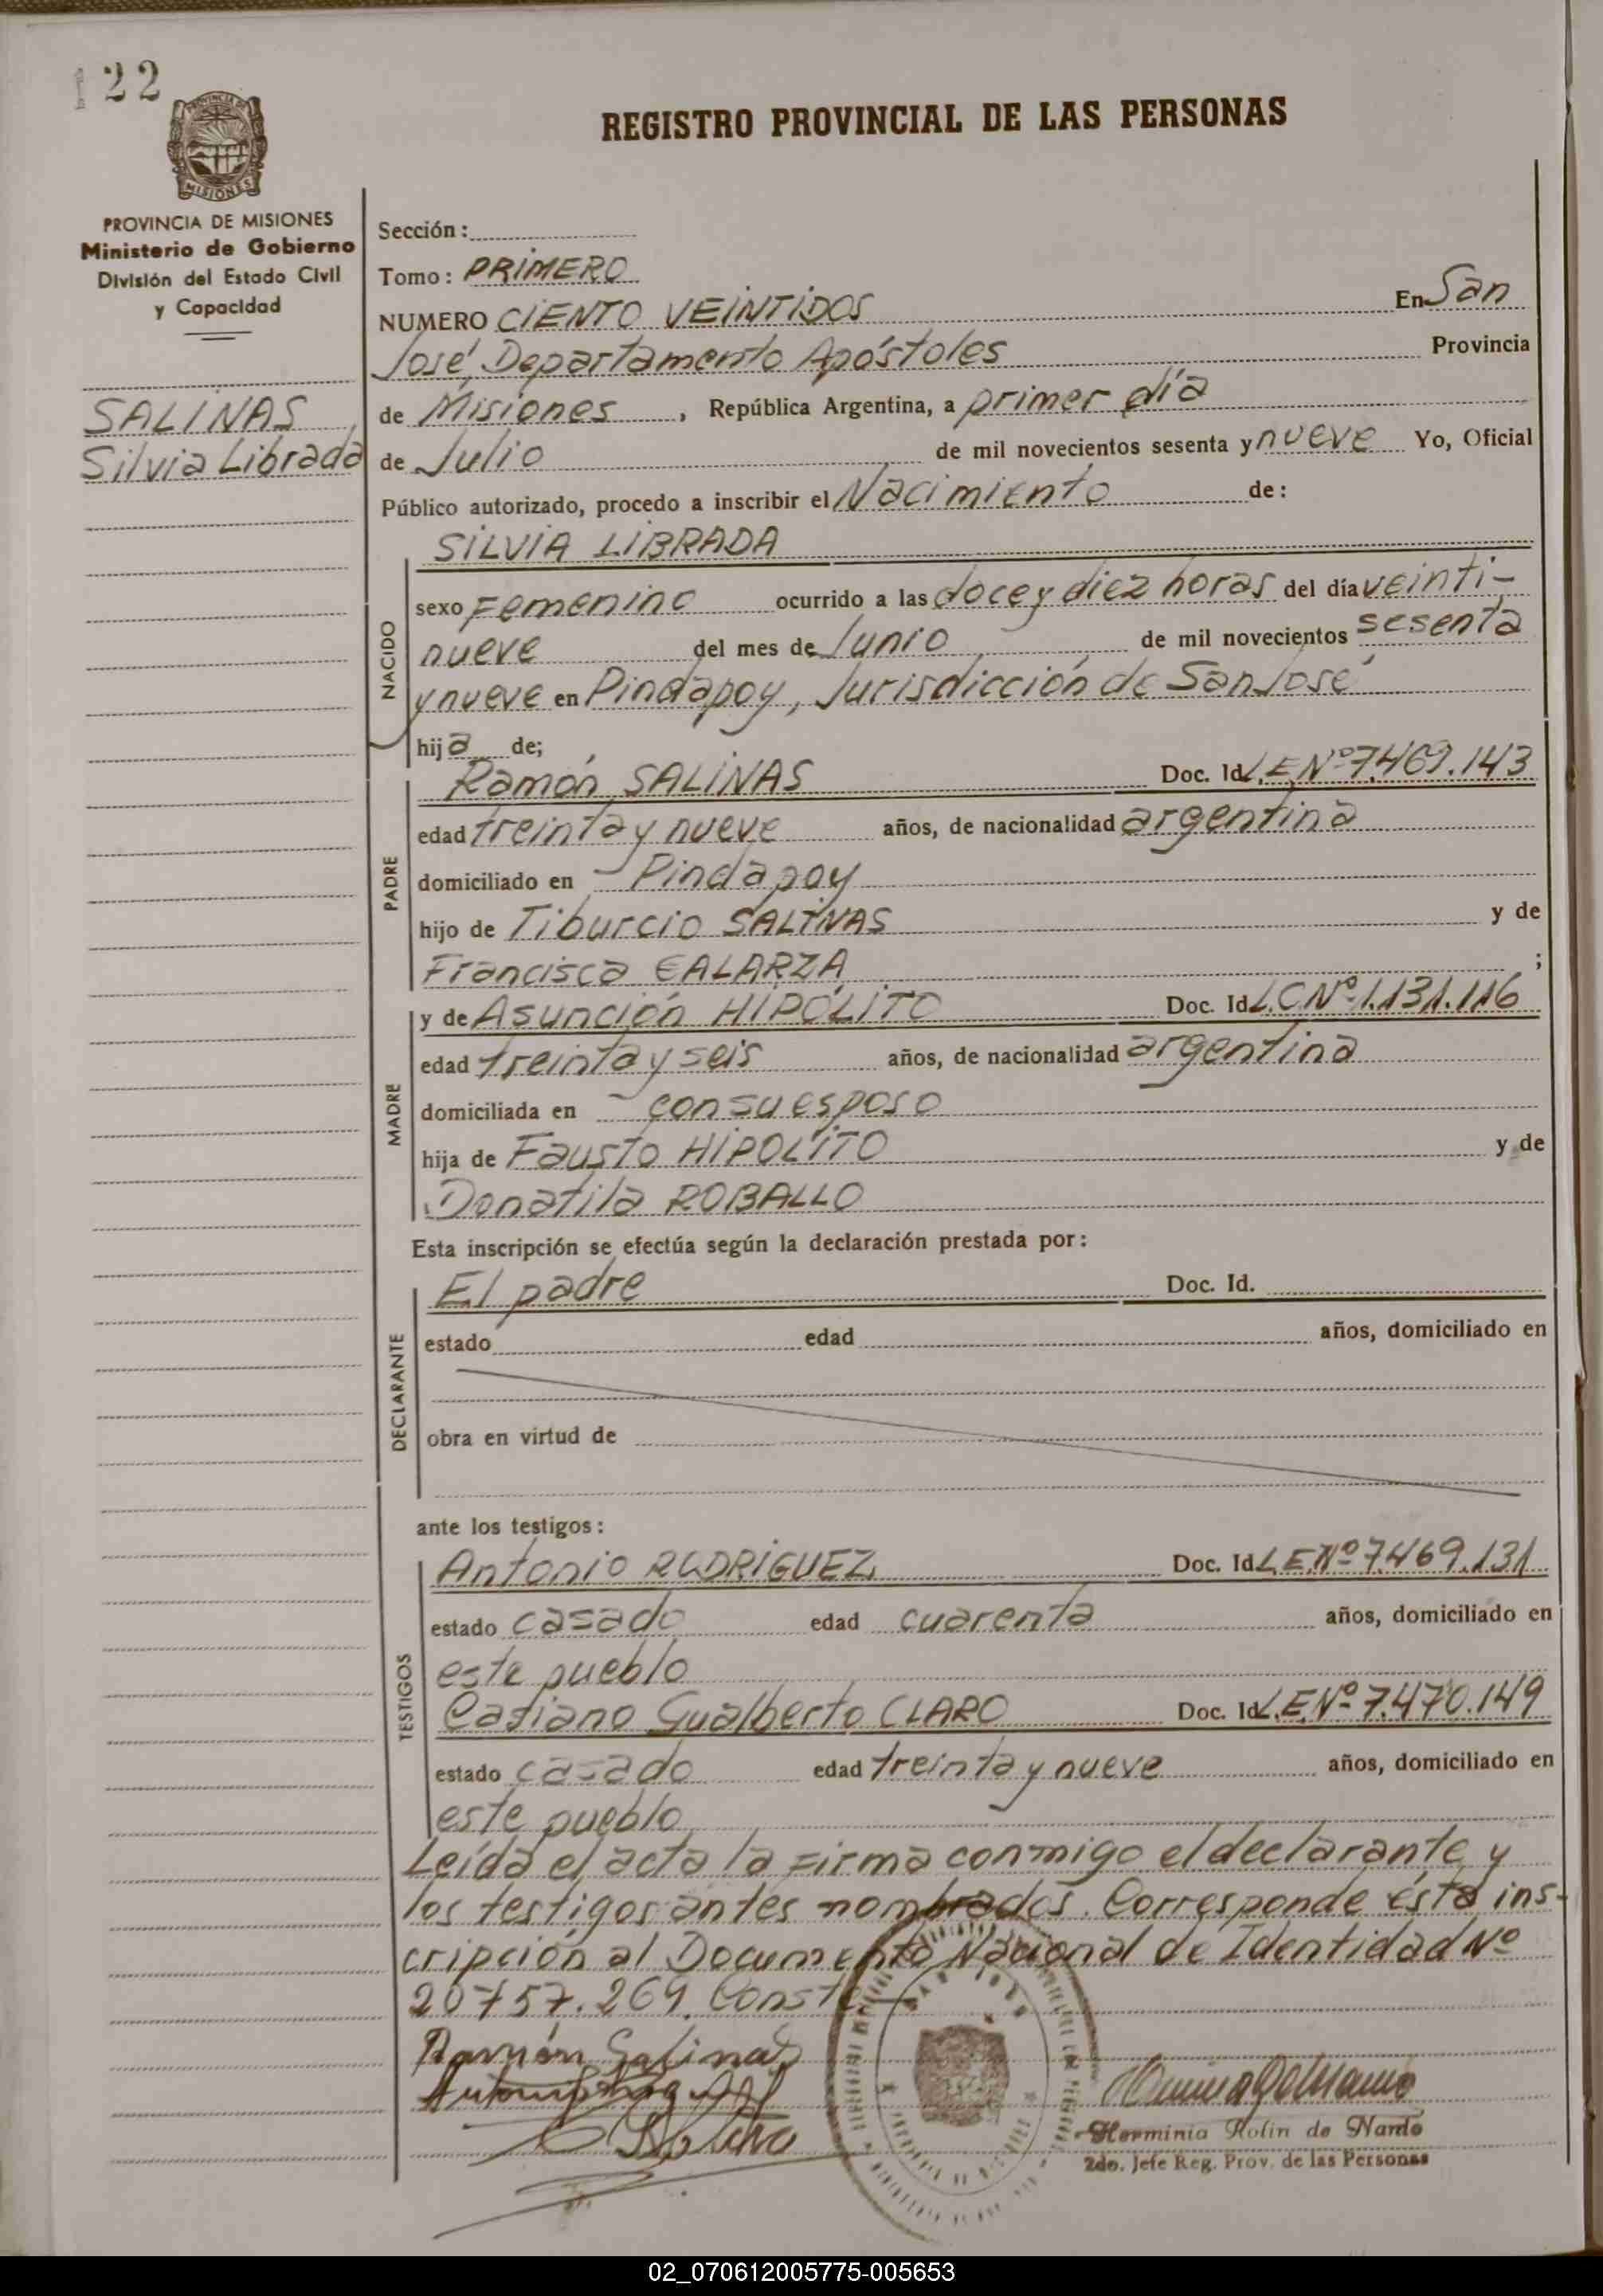 122
REGISTRO PROVINCIAL DE LAS PERSONAS
PROVINCIA DE MISIONES
Ministerio de Gobierno
División del Estado Civil
y Capacidad
SALINAS,
Silvia Librada
Sección:
Tomo: PRIMERO
NUMERO CIENTO VEINTIDOS En San
José, Departamento Apóstoles Provincia
de Misiones, República Argentina, a primer día
de Julio de mil novecientos sesenta y nueve Yo, Oficial
Público autorizado, procedo a inscribir el Nacimiento de:
NACIDO
SILVIA LIBRADA
sexo Femenino ocurrido a las doce y diez horas del día veinti-
nueve del mes de Junio de mil novecientos sesenta
y nueve en Pindapoy, Jurisdicción de San José
hija de;
PADRE
Ramón SALINAS Doc. Id. L.E.Nº 7.469.143
edad treinta y nueve años, de nacionalidad argentina
domiciliado en Pindapoy
hijo de Tiburcio SALINAS y de
Francisca GALARZA ;
MADRE
y de Asunción HIPÓLITO Doc. Id. L.C.Nº 1.131.116
edad treinta y seis años, de nacionalidad argentina
domiciliada en con su esposo
hija de Fausto HIPOLITO y de
Donatila ROBALLO
Esta inscripción se efectúa según la declaración prestada por:
DECLARANTE
El padre Doc. Id.
estado edad años, domiciliado en
obra en virtud de
ante los testigos:
TESTIGOS
Antonio RODRIGUEZ Doc. Id. L.E.Nº 7.469.131
estado casado edad cuarenta años, domiciliado en
este pueblo
Casiano Gualberto CLARO Doc. Id. L.E.Nº 7.470.149
estado casado edad treinta y nueve años, domiciliado en
este pueblo
Leída el acta la firma conmigo el declarante y
los testigos antes nombrados. Corresponde ésta ins-
cripción al Documento Nacional de Identidad Nº
20757.269. Conste
Ramón Salinas
Herminia Rolin de Nardo
2do. Jefe Reg. Prov. de las Personas
02_070612005775-005653